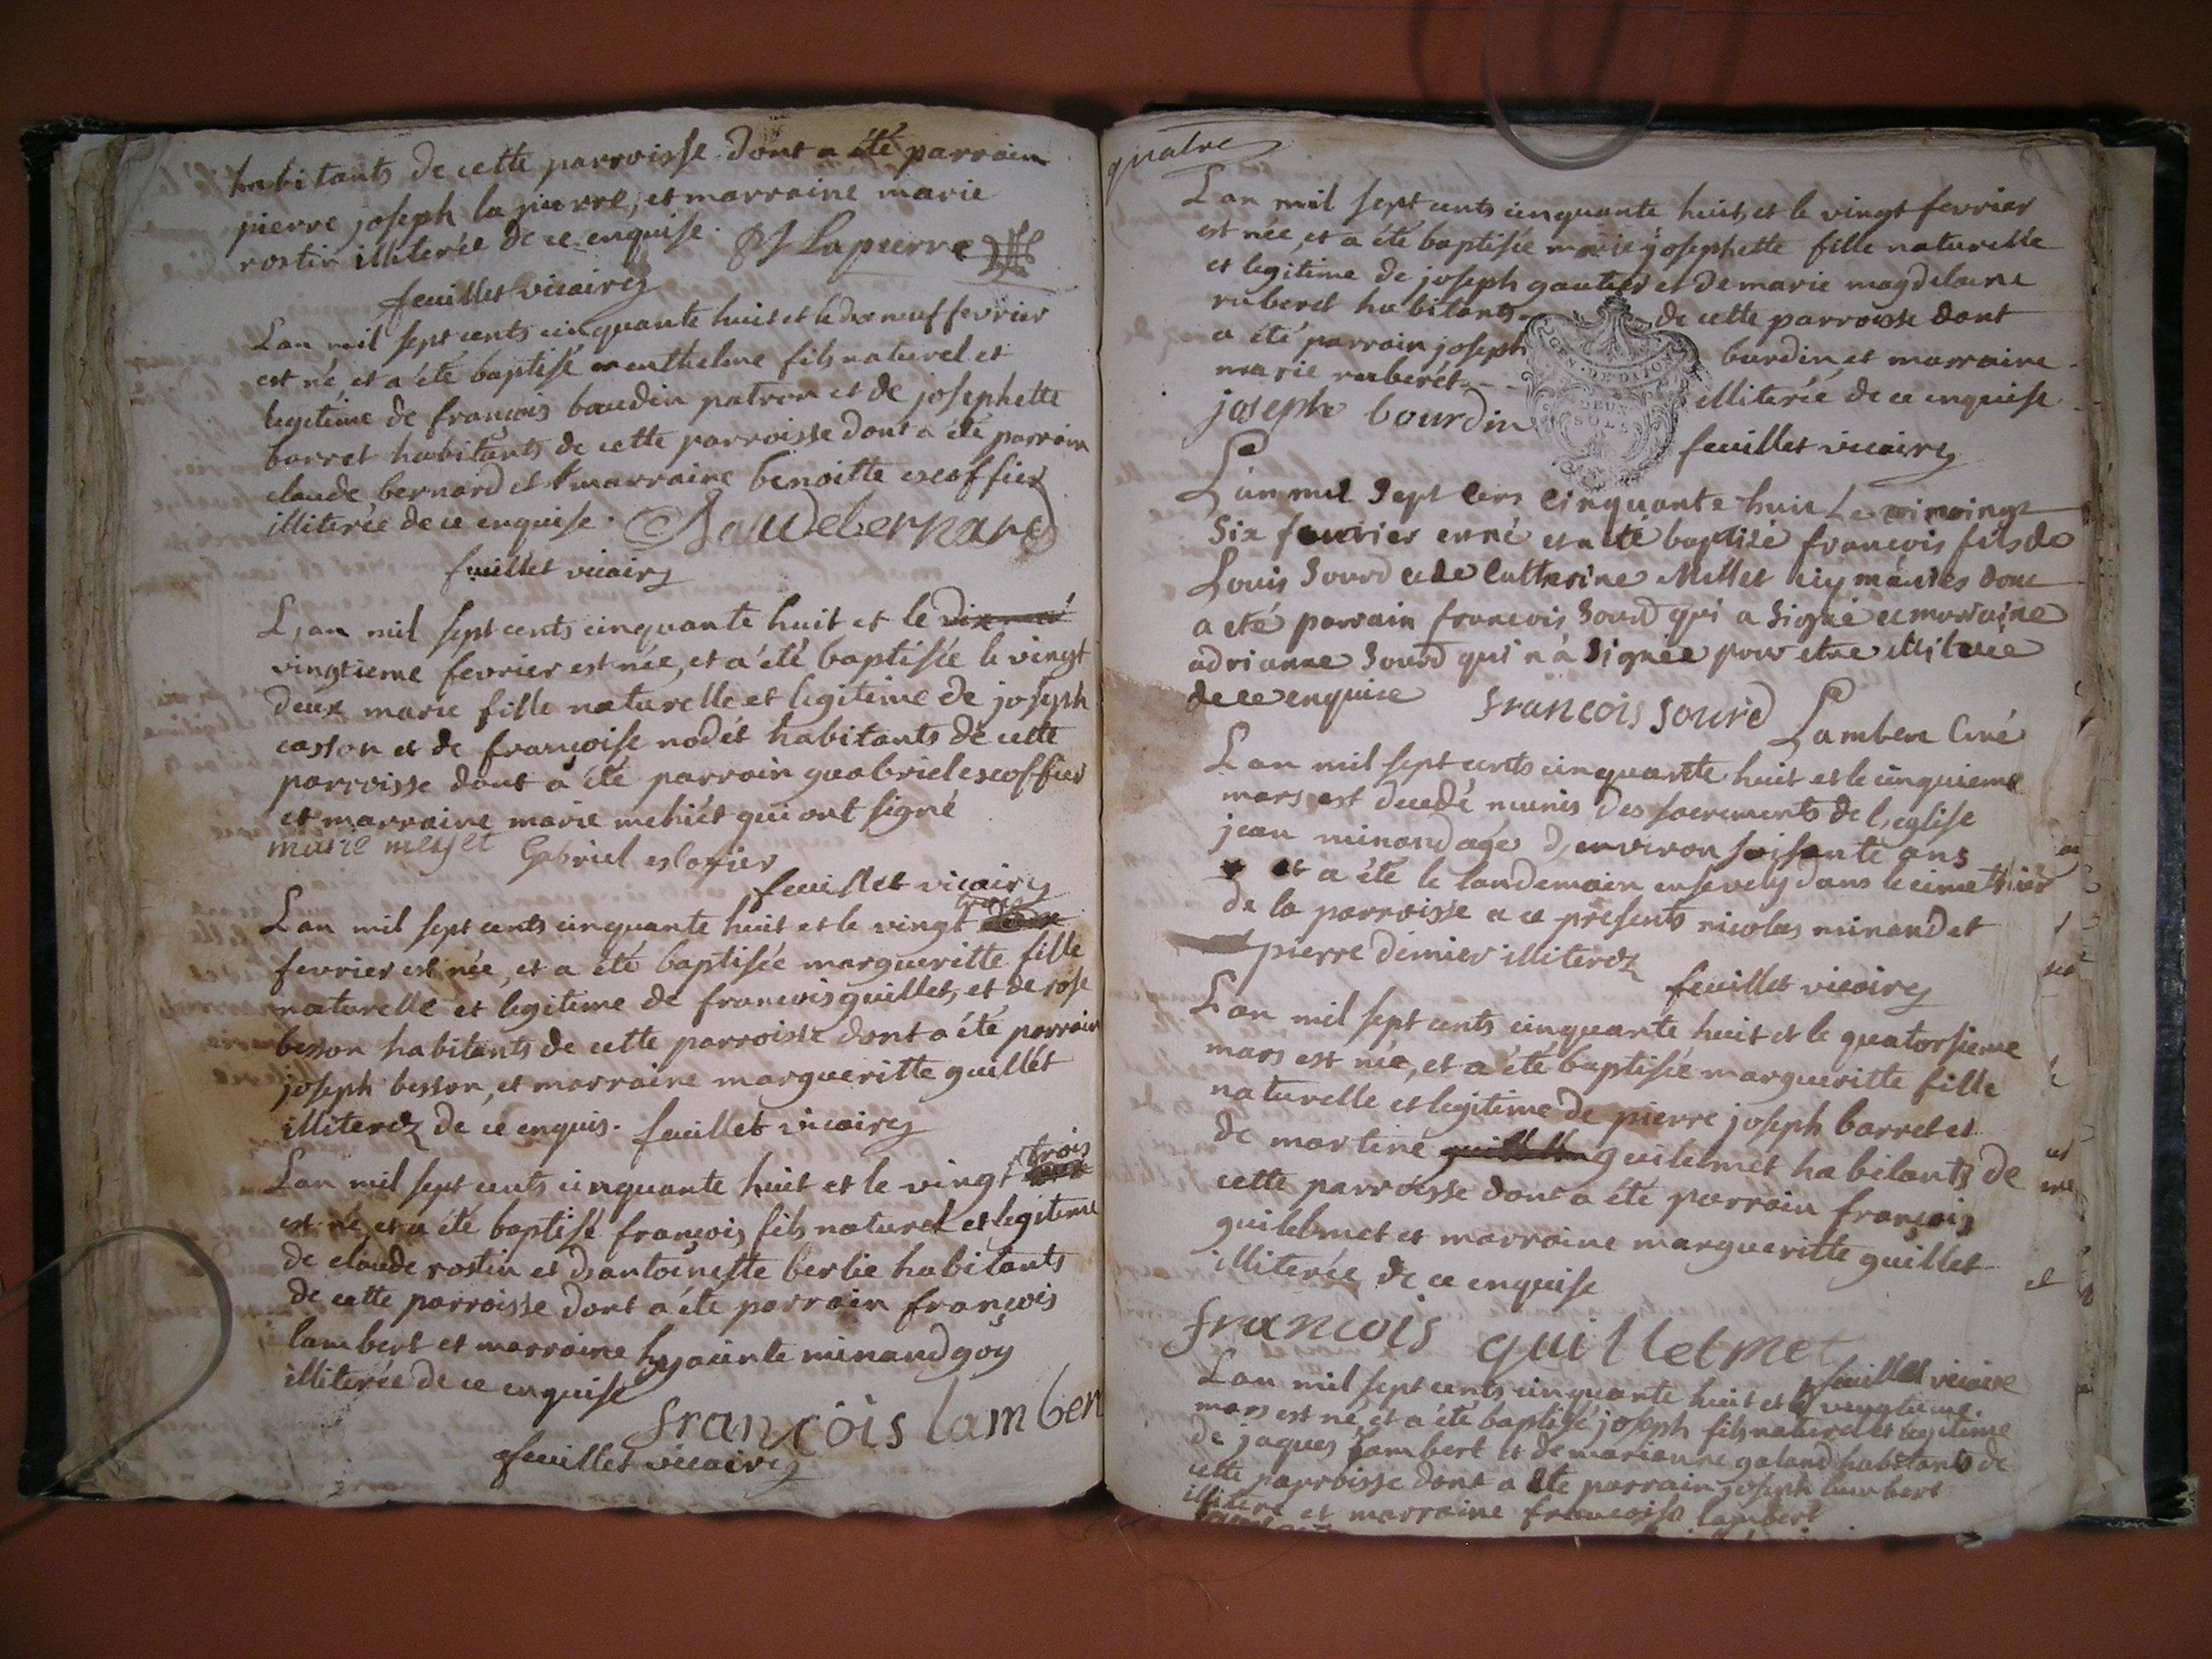 habitants de cette parroisse dont a été parrain
pierre joseph la pierre, et marraine marie
rostin illiterée de ce enquise. PJ Lapierre
feuillet vicaire
L'an mil sept cents cinquante huit et le dix neuf fevrier
est né, et a été baptisé fils naturel et
legitime de françois baudin patron et de josephette
barret habitants de cette parroisse dont a été parrain
claude bernard et marraine benoitte escoffier
illiterée de ce enquise. Claude bernard
feuillet vicaire
L'an mil sept cents cinquante huit et le
vingtieme fevrier est née, et a été baptisée le vingt
deux marie fille naturelle et legitime de joseph
casson et de françoise nodét habitants de cette
parroisse dont a été parrain guabriel escoffier
et marraine marie mehiét qui ont signé
marie Gabriel
feuillet vicaire
L'an mil sept cents cinquante huit et le vingt
fevrier est née, et a été baptisée margueritte fille
naturelle et legitime de francois guillet, et de rose
besson habitants de cette parroisse dont a été parrain
joseph besson, et marraine margueritte guillét
illiterez de ce enquis. feuillet vicaire
L'an mil sept cents cinquante huit et le vingt trois
est né, et a été baptisé françois fils naturel et legitime
de claude rostin et d'antoinette berlie habitants
de cette parroisse dont a été parrain françois
lambert et marraine hyacinte minaudgoy
illiterée de ce enquise
françois lamber
feuillet vicaire
quatre
L'an mil sept cents cinquante huit, et le vingt fevrier
est née, et a été baptisée marie josephette fille naturelle
et legitime de joseph gautier et de marie magdelaine
ruberet habitants de cette parroisse dont
a été parrain joseph burdin, et marraine
marie ruberét illiterée de ce enquise
joseph bourdin
GEN. DE DIJON
DEUX
SOLS
feuillet vicaire
L'an mil Sept Cens Cinquante huit Le vingt
Six fevrier est né et a été baptisé françois fils de
Louis Sourd et de Catherine Millet icy mariés dont
a été parrain francois Sourd qui a Signé et marraine
adrianne Sourd qui n'a Signée pour etre illiterée
de ce enquise francois sourd Lambert Curé
L'an mil sept cents cinquante huit et le cinquieme
mars est decedé munis des sacrements de l'eglise
jean minand agé d'environ soisante ans
et a été le landemain ensevely dans le cimethier
de la parroisse a ce presents nicolas minand et
pierre dèmier illiterez
feuillet vicaire
L'an mil sept cents cinquante huit et le quatorsieme
mars est née, et a été baptisée margueritte fille
naturelle et legitime de pierre joseph barret et
de martine guilelmet habitants de
cette parroisse dont a été parrain françois
guilelmet et marraine margueritte guillet
illiterée de ce enquise
francois quilletmet
feuillet vicaire
L'an mil sept cents cinquante huit et le vingtieme
mars est né, et a été baptisé joseph fils naturel et legitime
de jaques Lambert et de marianne galand habitants de
cette parroisse dont a été parrain joseph lambert
illiteré et marraine francoise lambert